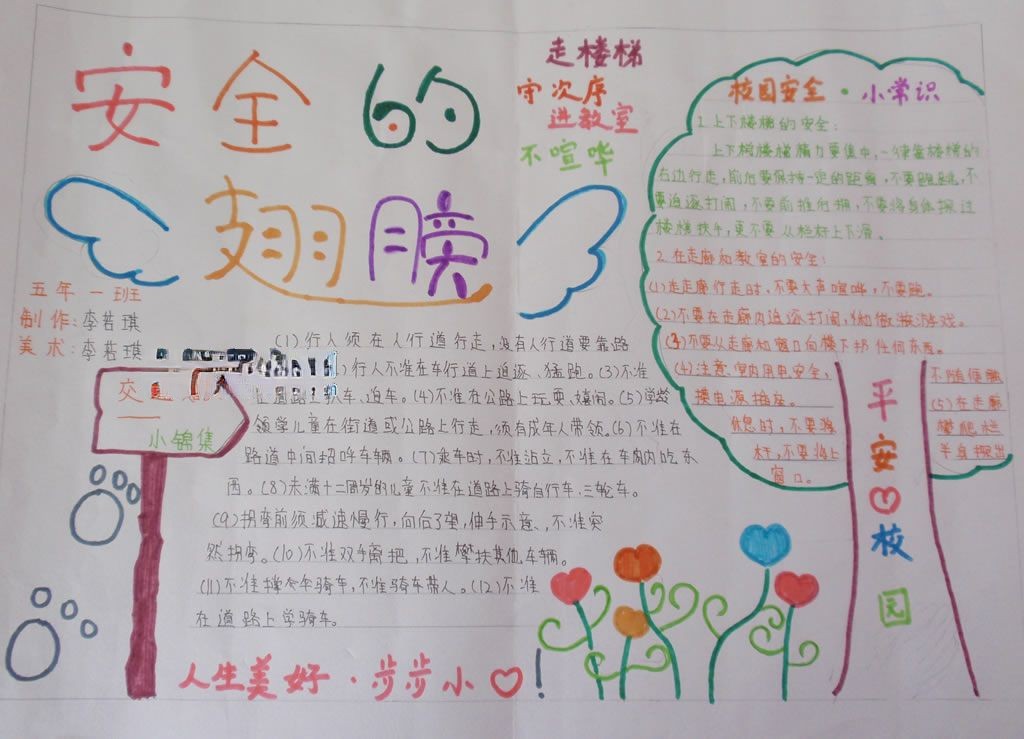 安全的
翅膀
走楼梯
守次序
进教室
不喧哗
五年一班
制作:李若琪
美术:李若琪
交通
小锦集
(1)行人须在人行道行走,没有人行道要靠路
行人不准在车行道上追逐、猛跑。(3)不准
扒车、追车。(4)不准在公路上玩耍、嬉闹。(5)学龄
领学儿童在街道或公路上行走,须有成年人带领。(6)不准在
路道中间招呼车辆。(7)乘车时,不准站立,不准在车厢内吃东
西。(8)未满十二周岁的儿童不准在道路上骑自行车、三轮车。
(9)拐弯前须减速慢行,向后了望,伸手示意、,不准突
然拐弯。(10)不准双手离把,不准攀扶其他车辆。
(11)不准撑伞骑车,不准骑车带人。(12)不准
在道路上学骑车。
人生美好·步步小♡!
校园安全·小常识
1.上下楼梯的安全:
上下楼梯精力要集中,一律靠楼梯的
右边行走,前后要保持一定的距离,不要跑跳,不
要追逐打闹,不要前推后拥,不要将身体探过
楼梯扶手,更不要从栏杆上下滑。
2.在走廊和教室的安全:
(1)走走廊行走时、不要大声喧哗,不要跑。
(2)不要在走廊内追逐打闹,做游戏。
(3)不要从走廊和窗口向楼下扔任何东西。
(4)注意室内用电安全,
不随便触
摸电源插座。
(5)在走廊
休息时,不要
攀爬栏
杆,不要将上
半身探出
窗口。
平安♡校园